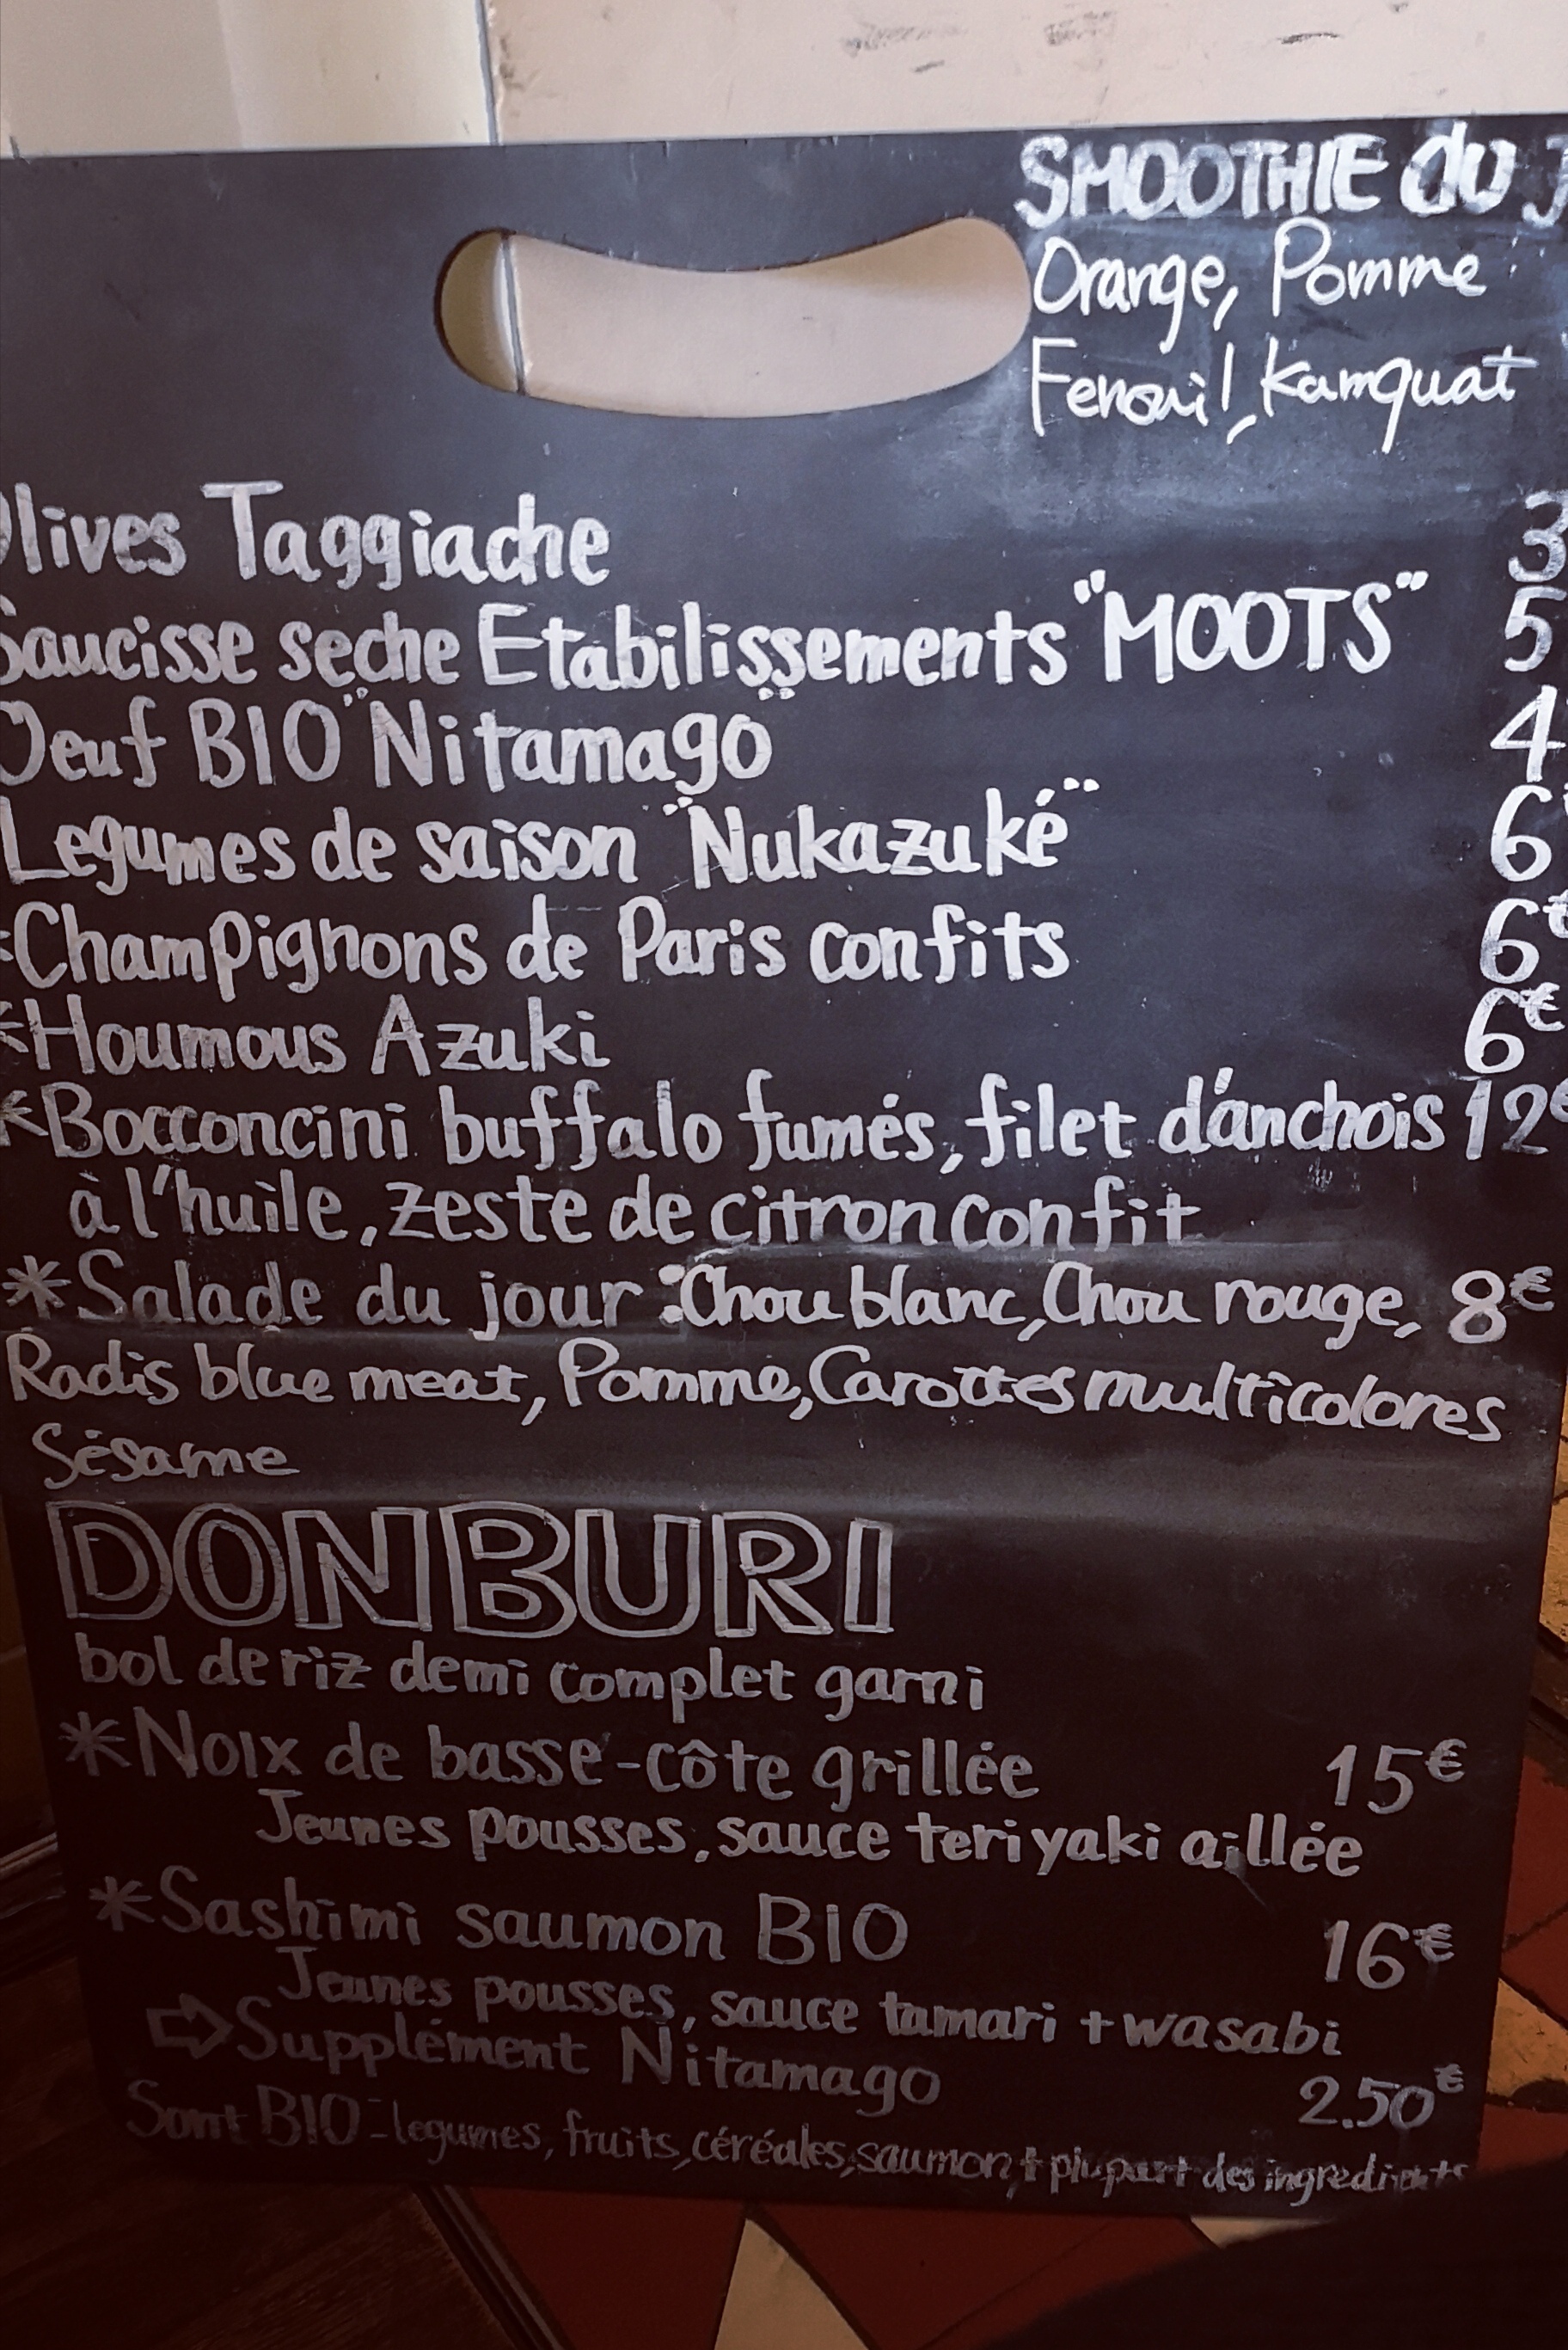 SMOOTHIE du J
Orange, Pomme
Fenouil, Kamquat
Olives Taggiache 3
Saucisse seche Etabilissements "MOOTS" 5
Oeuf BIO "Nitamago" 4
Legumes de saison "Nukazuké" 6
*Champignons de Paris confits 6€
*Houmous Azuki 6€
*Bocconcini buffalo fumés, filet d'anchois 12€
à l'huile, zeste de citron confit
*Salade du jour : Chou blanc, Chou rouge, 8€
Radis blue meat, Pomme, Carottes multicolores
Sésame
DONBURI
bol de riz demi complet garni
*Noix de basse-côte grillée 15€
Jeunes pousses, sauce teriyaki aillée
*Sashimi saumon BIO 16€
Jeunes pousses, sauce tamari + wasabi
⇨Supplément Nitamago 2.50€
Sont BIO - legumes, fruits, céréales, saumon, + plupart des ingredients